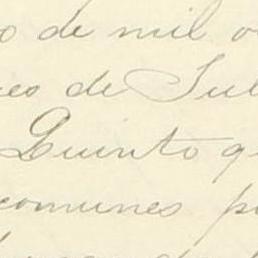 o de mil o
es de Jul
Quinto q
comunes p